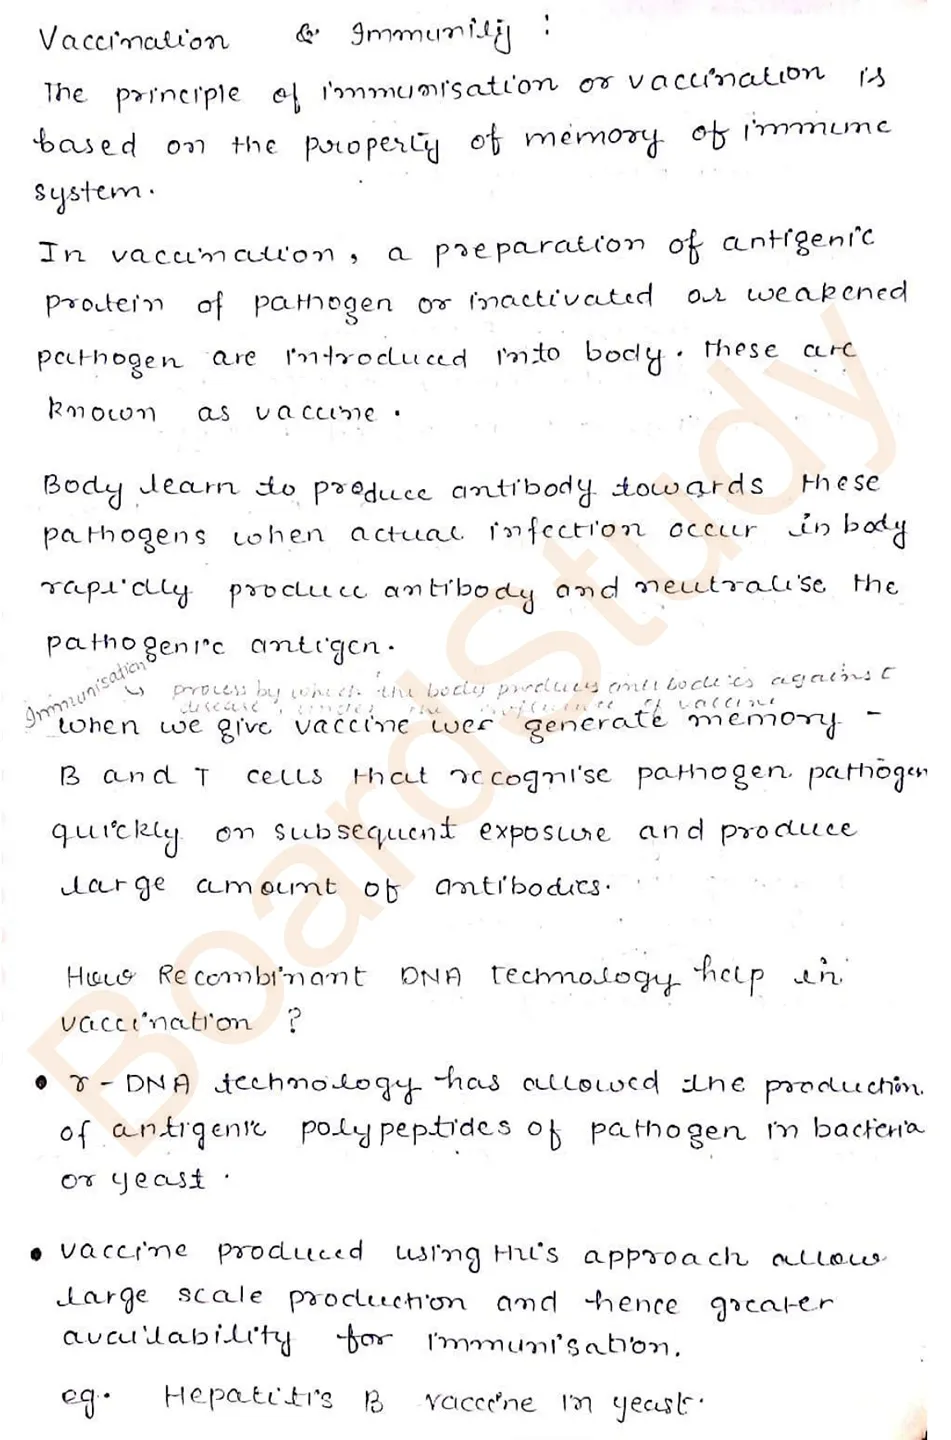 Vaccination & Immunity :
The principle of immunisation or vaccination is
based on the property of memory of immune
system.
In vaccination, a preparation of antigenic
protein of pathogen or inactivated or weakened
pathogen are introduced into body. These are
known as vaccine.
Body learn to produce antibody towards these
pathogens when actual infection occur in body
rapidly produce antibody and neutralise the
pathogenic antigen.
Immunisation → process by which the body produces antibodies against
disease, under the influence of vaccine
when we give vaccine we generate memory -
B and T cells that recognise pathogen pathogen
quickly on subsequent exposure and produce
large amount of antibodies.
How Recombinant DNA technology help in
vaccination ?
• r - DNA technology has allowed the production
of antigenic polypeptides of pathogen in bacteria
or yeast .
• vaccine produced using this approach allow
large scale production and hence greater
availability for immunisation.
eg. Hepatitis B vaccine in yeast.
BoardStudy